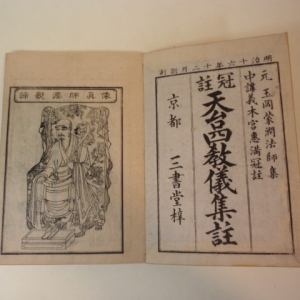 明治十六年十二月
元 玉岡蒙潤法師集
中講義木宮惠滿冠註
冠註
天台四教儀集註
京都 三書堂梓
諦觀臺師真像